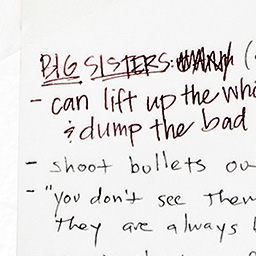 BIG SISTERS: (
- can lift up the
& dump the bad
- shoot bullets
- "you don't see them
they are always